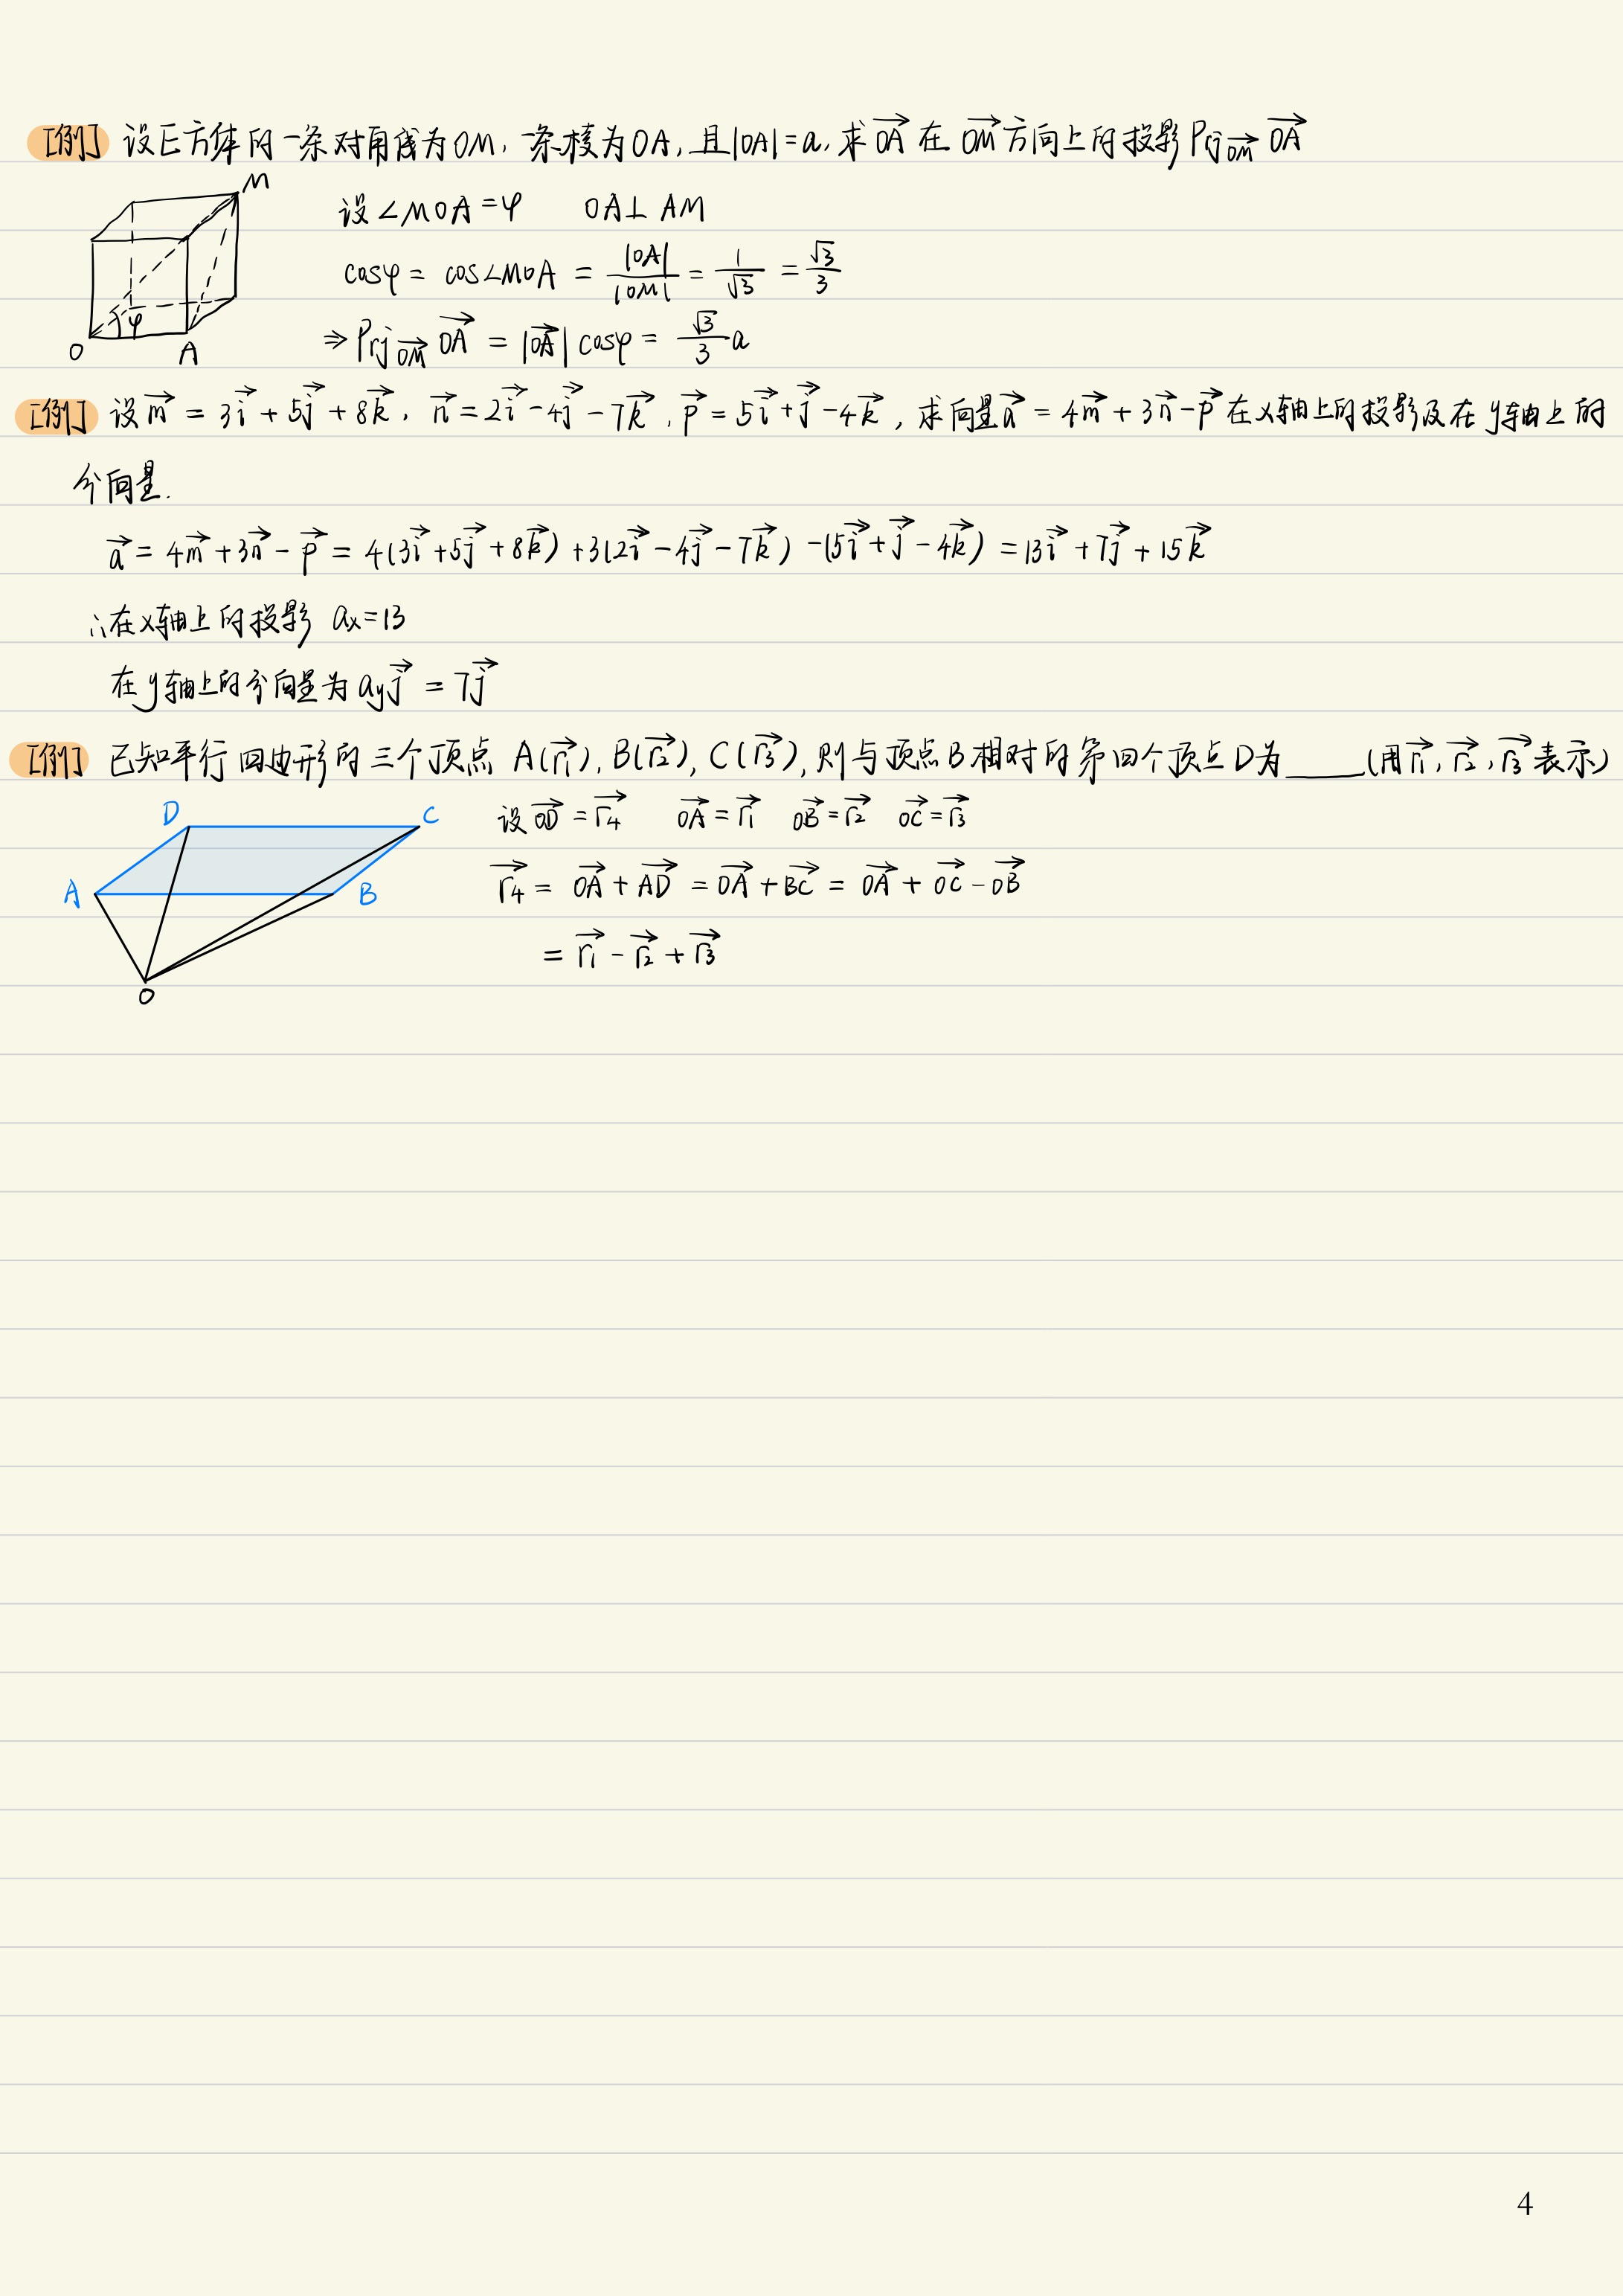 [例] 设正方体的一条对角线为OM, 一条棱为OA, 且|OA|=a, 求$\overrightarrow{OA}$在$\overrightarrow{OM}$方向上的投影$Prj_{\overrightarrow{OM}}\overrightarrow{OA}$
M
O
A
φ
设∠MOA=φ OA⊥AM
cosφ = cos∠MOA = $\frac{|OA|}{|OM|}$ = $\frac{1}{\sqrt{3}}$ = $\frac{\sqrt{3}}{3}$
⇒ $Prj_{\overrightarrow{OM}}\overrightarrow{OA}$ = $|\overrightarrow{OA}|$cosφ = $\frac{\sqrt{3}}{3}a$
[例] 设$\vec{m}$ = 3$\vec{i}$ + 5$\vec{j}$ + 8$\vec{k}$, $\vec{n}$ = 2$\vec{i}$ - 4$\vec{j}$ - 7$\vec{k}$, $\vec{p}$ = 5$\vec{i}$ + $\vec{j}$ - 4$\vec{k}$, 求向量$\vec{a}$ = 4$\vec{m}$ + 3$\vec{n}$ - $\vec{p}$在x轴上的投影及在y轴上的
分向量.
$\vec{a}$ = 4$\vec{m}$ + 3$\vec{n}$ - $\vec{p}$ = 4(3$\vec{i}$ + 5$\vec{j}$ + 8$\vec{k}$) + 3(2$\vec{i}$ - 4$\vec{j}$ - 7$\vec{k}$) - (5$\vec{i}$ + $\vec{j}$ - 4$\vec{k}$) = 13$\vec{i}$ + 7$\vec{j}$ + 15$\vec{k}$
∴在x轴上的投影 $a_x$=13
在y轴上的分向量为$a_y\vec{j}$ = 7$\vec{j}$
[例] 已知平行四边形的三个顶点 A($\vec{r_1}$), B($\vec{r_2}$), C($\vec{r_3}$), 则与顶点B相对的第四个顶点D为_____(用$\vec{r_1}$, $\vec{r_2}$, $\vec{r_3}$表示)
D
C
A
B
O
设$\overrightarrow{OD}$ = $\vec{r_4}$ $\overrightarrow{OA}$ = $\vec{r_1}$ $\overrightarrow{OB}$ = $\vec{r_2}$ $\overrightarrow{OC}$ = $\vec{r_3}$
$\vec{r_4}$ = $\overrightarrow{OA}$ + $\overrightarrow{AD}$ = $\overrightarrow{OA}$ + $\overrightarrow{BC}$ = $\overrightarrow{OA}$ + $\overrightarrow{OC}$ - $\overrightarrow{OB}$
= $\vec{r_1}$ - $\vec{r_2}$ + $\vec{r_3}$
4